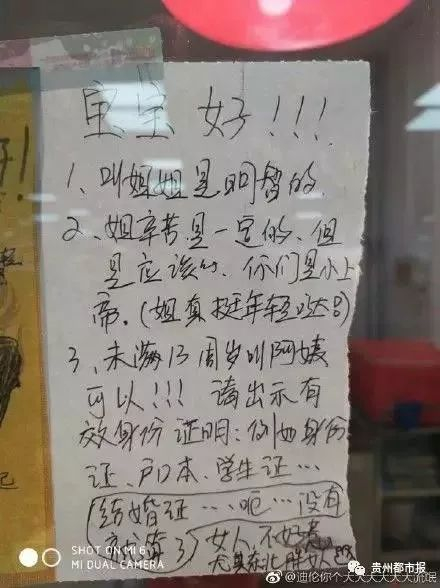 宝宝好!!!
1、叫姐姐是明智的
2、姐辛苦是一定的、但
是应该的、你们是小上
帝.(姐真挺年轻哒)
3、未满13周岁叫阿姨
可以!!! 请出示有
效身份证明:例如身份
证、户口本、学生证…
(结婚证…呃…没有
就算了)女人不好
SHOT ON MI 6
MI DUAL CAMERA
贵州都市报
@迪伦你个大大大大大大流氓